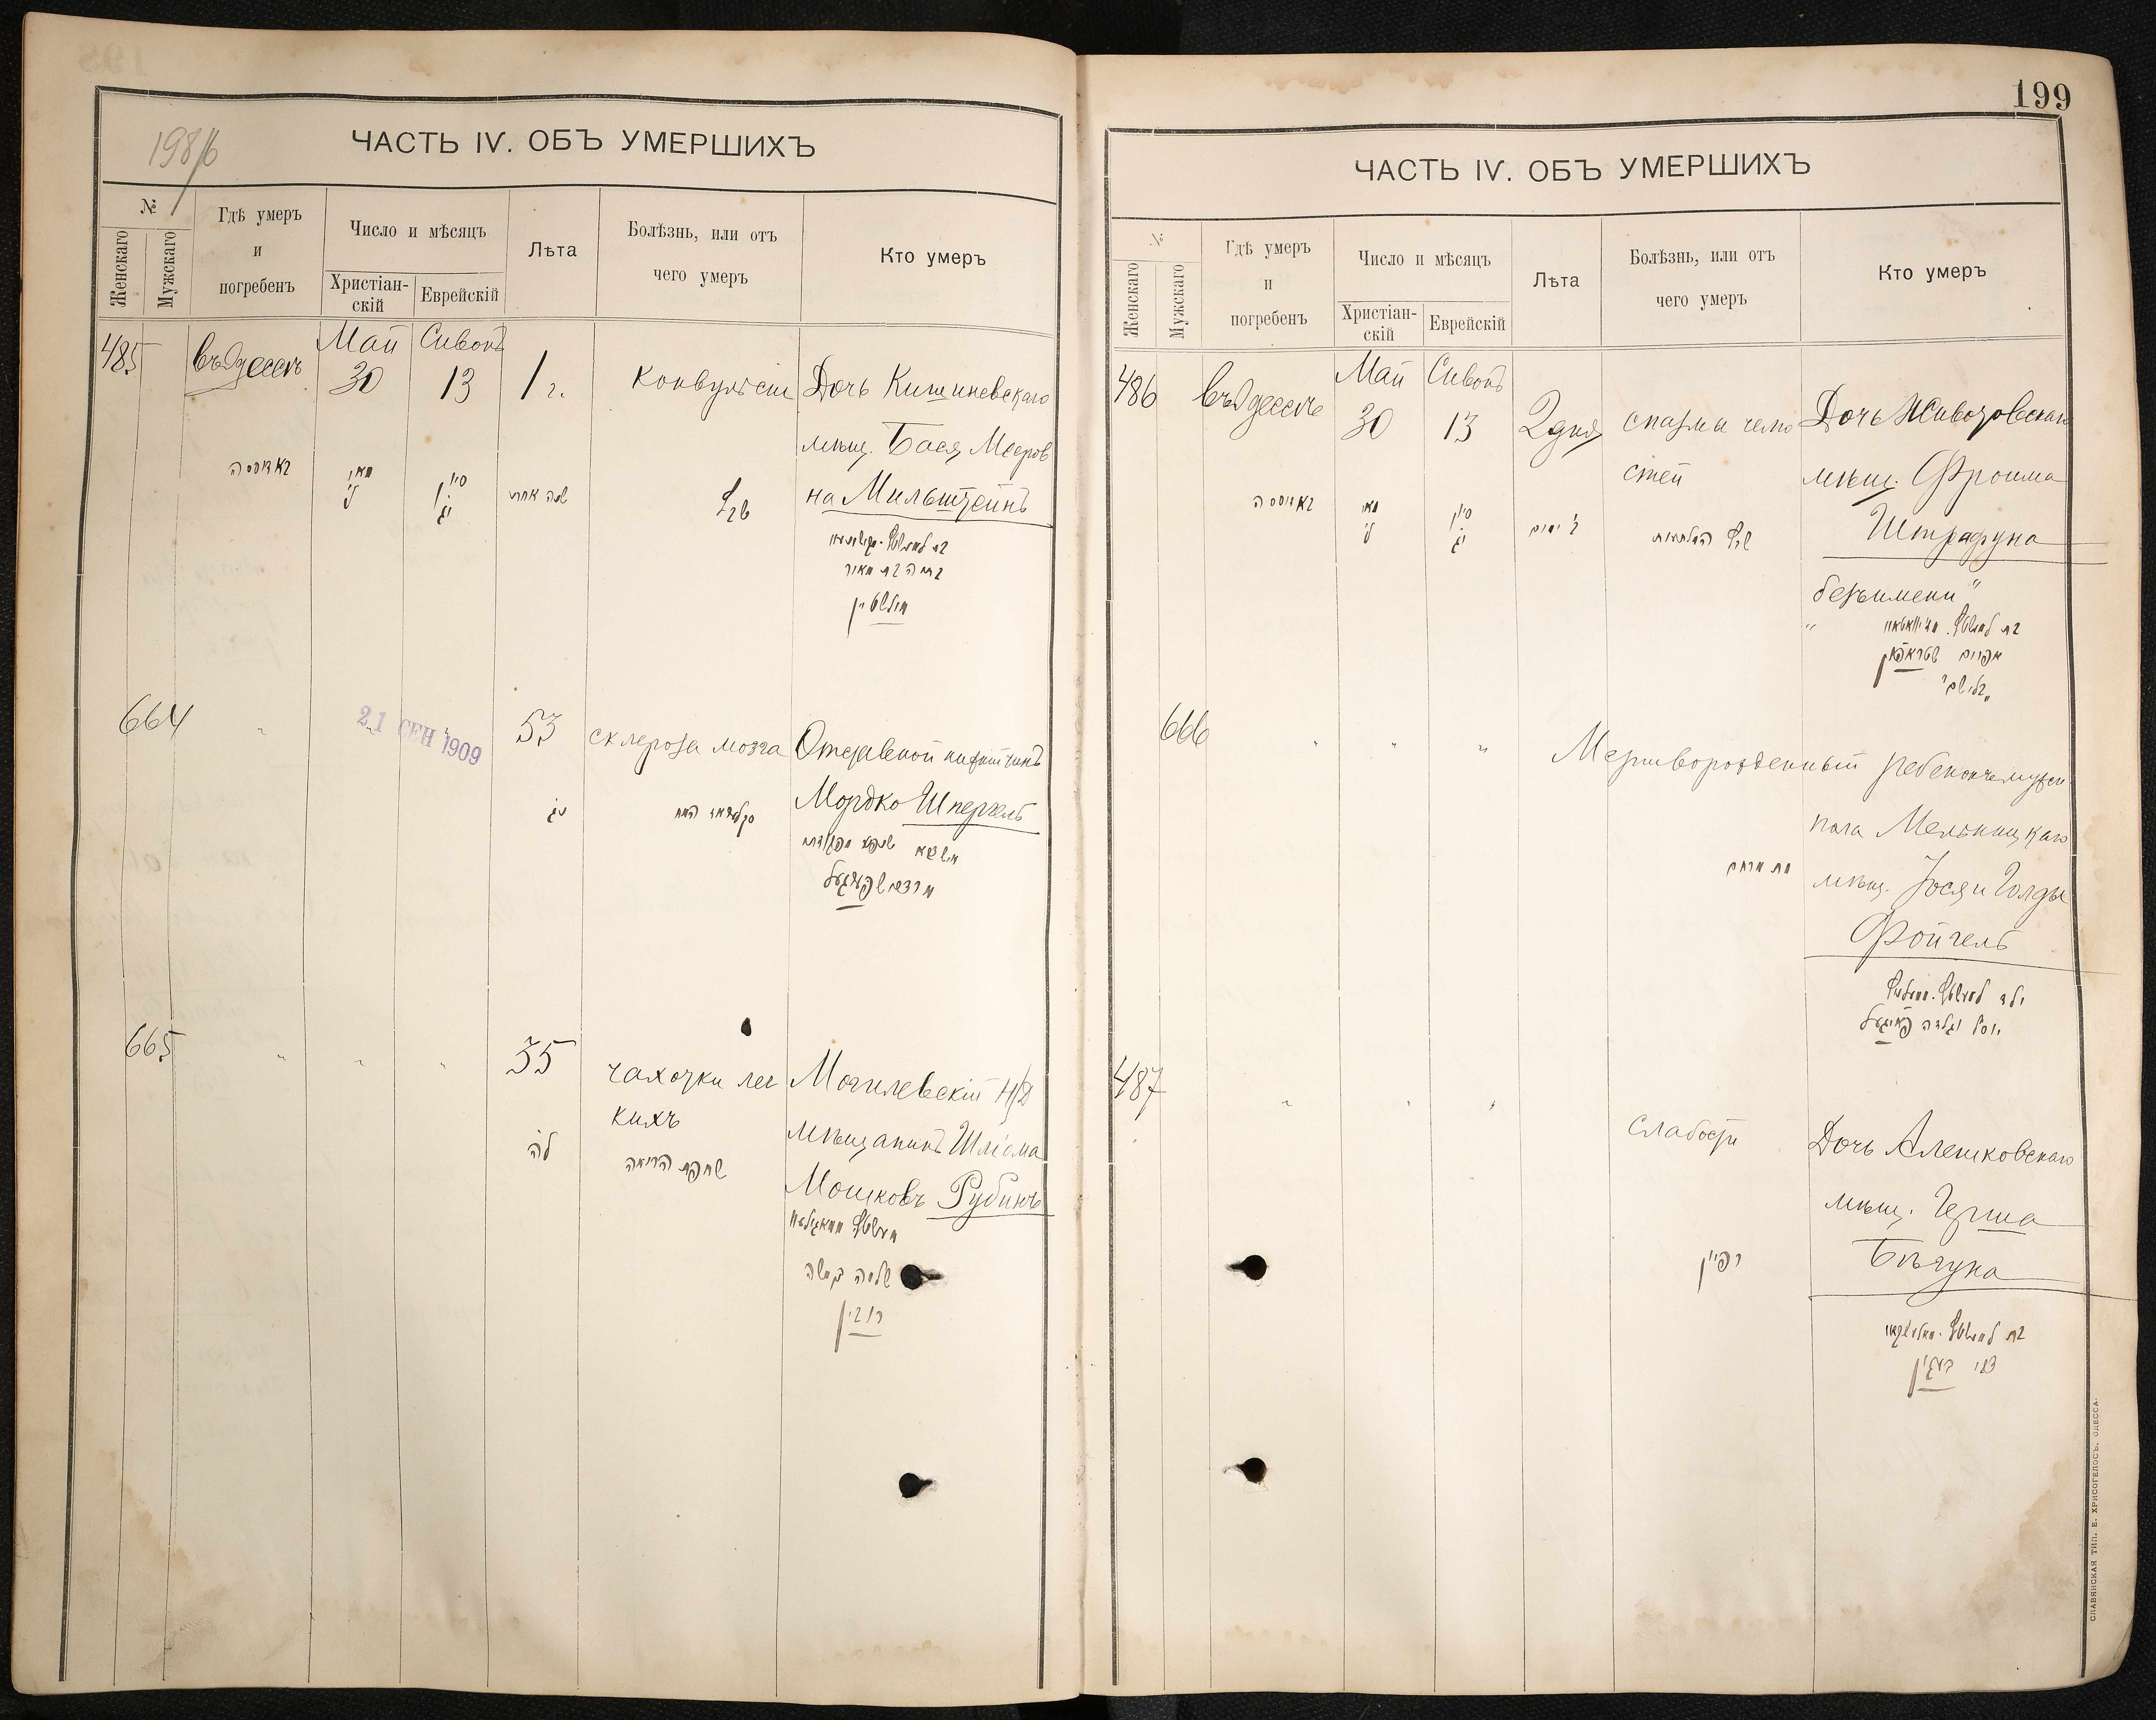 198/б
ЧАСТЬ IV. ОБЪ УМЕРШИХЪ
№
Женскаго
Мужскаго
Гдѣ умеръ
и
погребенъ
Число и мѣсяцъ
Христіан-
скій
Еврейскій
Лѣта
Болѣзнь, или отъ
чего умеръ
Кто умеръ
485
въ Одессѣ
Май
30
Сивонъ
13
1 г.
конвульсіи
Дочь Кишиневскаго
мѣщ. Бася Мееров
на Мильштейнъ
באדוססה
מאי
ל׳
סיון
יג
שנה אחת
שבץ
מילשטיין
664
21 СЕН 1909
53
склероза мозга
Отставной
Мордко Шпергель
נג
665
35
чахотки лег
кихъ
Могилевскій Н/Д
мѣщанинъ Шліома
Мошковъ Рубинъ
לה
שחפת הריאה
שלמה במשה
רובין
199
ЧАСТЬ IV. ОБЪ УМЕРШИХЪ
№
Женскаго
Мужскаго
Гдѣ умеръ
и
погребенъ
Число и мѣсяцъ
Христіан-
скій
Еврейскій
Лѣта
Болѣзнь, или отъ
чего умеръ
Кто умеръ
486
въ Одессѣ
Май
30
Сивонъ
13
2 дня
спазмы челю
стей
Дочь Животовскаго
мѣщ. Фроима
Штрафуна
безъ имени
באדוססה
מאי
ל׳
סיון
יג
ב׳ ימים
666
Мертворожденный ребенокъ муж
пола Мельницкаго
мѣщ. Іося и Голды
Фойгель
487
слабости
Дочь Алешковскаго
мѣщ. Герша
Бѣгуна
רפיון
צבי בעגון
СЛАВЯНСКАЯ ТИП. Е. ХРИСОГЕЛОСЪ. ОДЕССА.